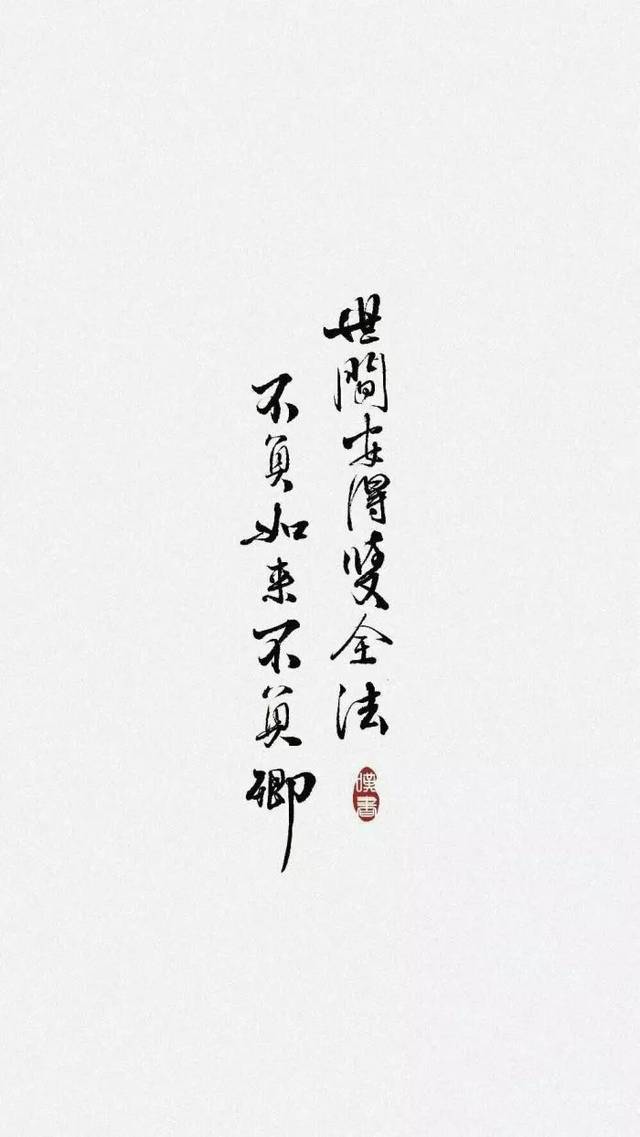 世間安得雙全法
不負如来不負卿
嘆書